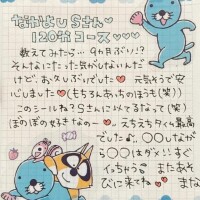 なかよしSさん♡
120分コース♡♡♡
数えてみたら…9ヶ月ぶり!?
そんなにたった気がしないんだ
けど…お久しぶりでした♡元気そうで安
心しました♡(もちろんあっちのほうも(笑))
このシールね?Sさんに似てるなって(笑)
ぼのぼの好きなの〜♡えちえちタイム最高
でした♡〇〇しなが
ら〇〇はダメ!!すぐ
イっちゃう またあそ
びに来てね♡ また